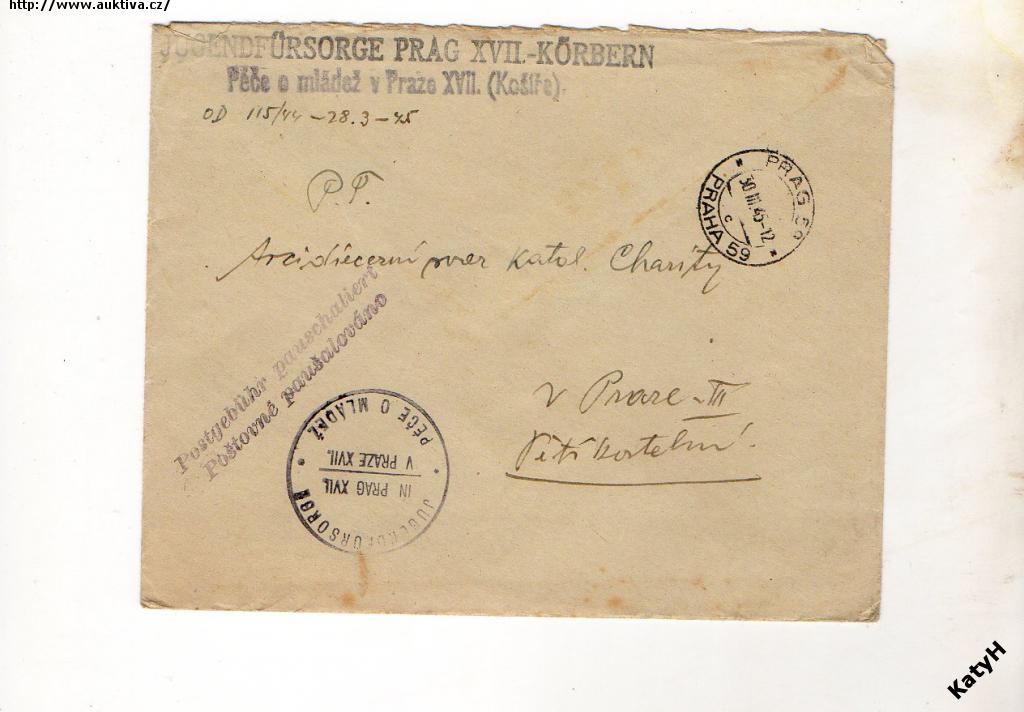 http://www.auktiva.cz/
JUGENDFÜRSORGE PRAG XVII.-KÖRBERN
Péče o mládež v Praze XVII. (Košíře).
OD 115/44 - 28.3 - 45
P.T.
PRAG 59
30 III. 45-12
c
PRAHA 59
Arcidiecesní svaz katol. Charity
Postgebühr pauschaliert
Poštovné paušalováno
v Praze - III
JUGENDFÜRSORGE
IN PRAG XVII.
V PRAZE XVII.
PÉČE O MLÁDEŽ
KatyH